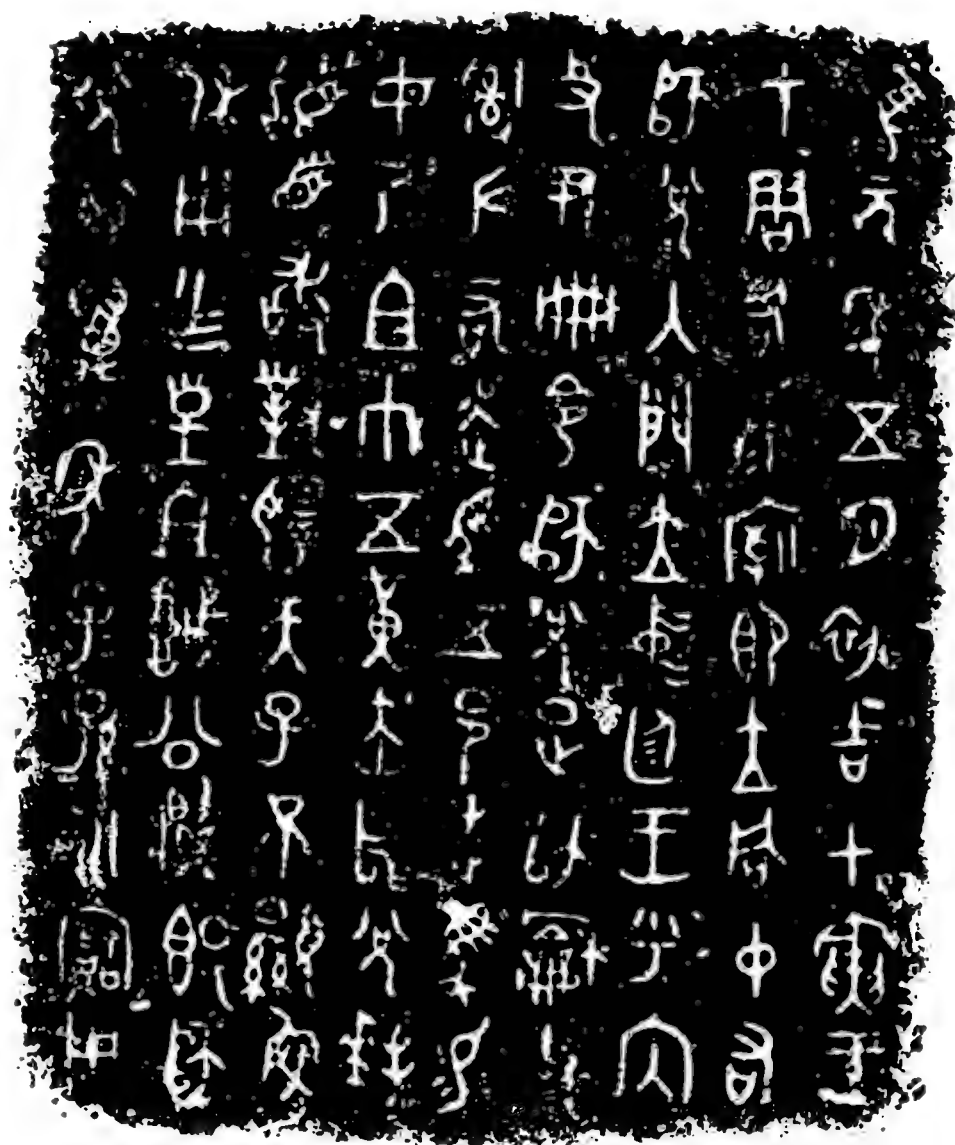 隹元年五月初吉甲寅王
才周各康廟即立同中右
師兌入門立中廷王乎內
史尹冊令師兌疋師龢父
𤔲左右走馬五邑走馬易
女乃且巾五黃赤舄兌拜
𩒨首敢對揚天子不顯魯
休用乍皇且城公䵼簋師
兌其萬年子孫永寶用